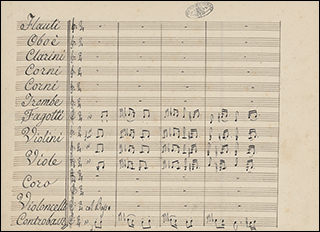 Flauti
Oboè
Clarini
Corni
Corni
Trombe
Fagotti
Violini
Viole
Coro
Violoncelli
Controbassi